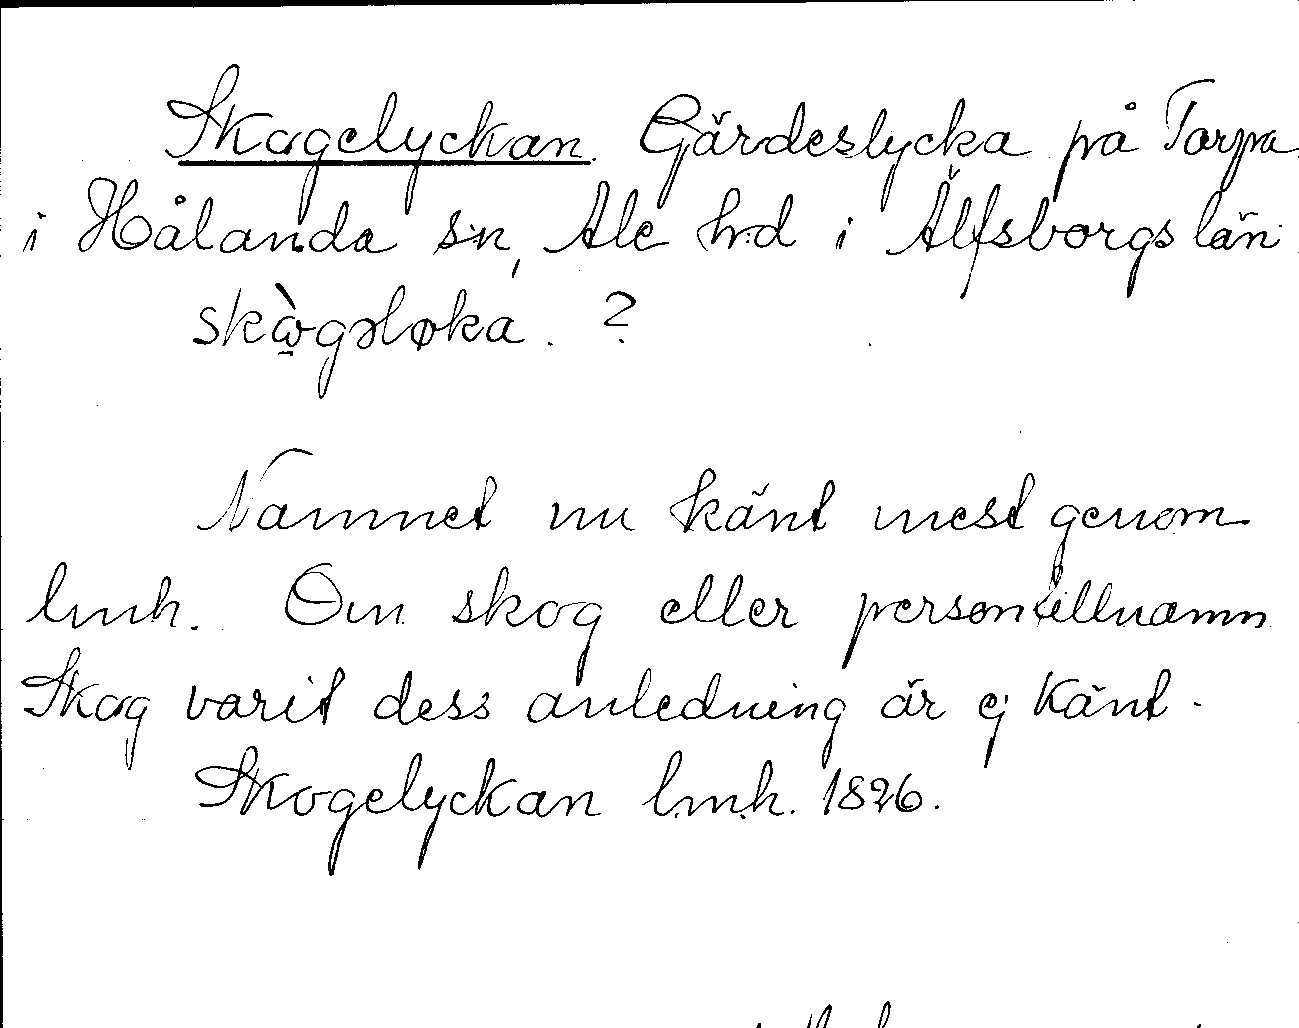 Skogelyckan. Gärdeslycka på Torpa
i Hålanda sn, Ale hd i Älfsborgs län
skògəløka. ?
Namnet nu känt mest genom
lmh. Om skog eller persontillnamn
Skog varit dess anledning är ej känt.
Skogelyckan l.m.h. 1826.